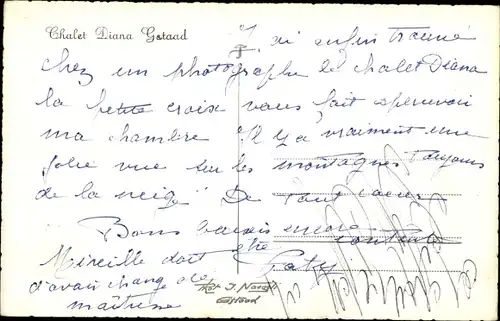 Chalet Diana Gstaad
J'ai enfin trouvé
chez un photographe le chalet Diana
la petite croix vous fait apercevoir
ma chambre Il y a vraiment une
jolie vue sur les montagnes Toujours
de la neige De tout coeur
Bons baisers encore
Mireille doit être contente
d'avoir changé de Paty
maîtresse
Phot. J. Naegeli
Gstaad